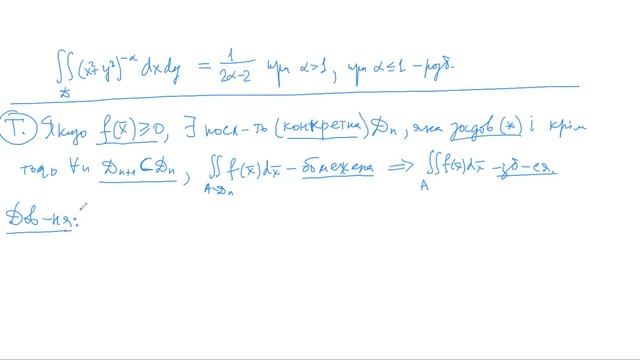 ∬_D (x²+y²)^{-α} dxdy = 1/(2α-2) при α>1, при α≤1 – розб.
Т. Якщо f(x̄)≥0, ∃ посл-ть (конкретна) Dₙ, яка задов (*) і крім
того ∀n Dₙ₊₁⊂Dₙ, ∬_{A\Dₙ} f(x̄)dx̄ – обмежена ⇒ ∬_A f(x̄)dx̄ – зб-ся.
Дов-ня: